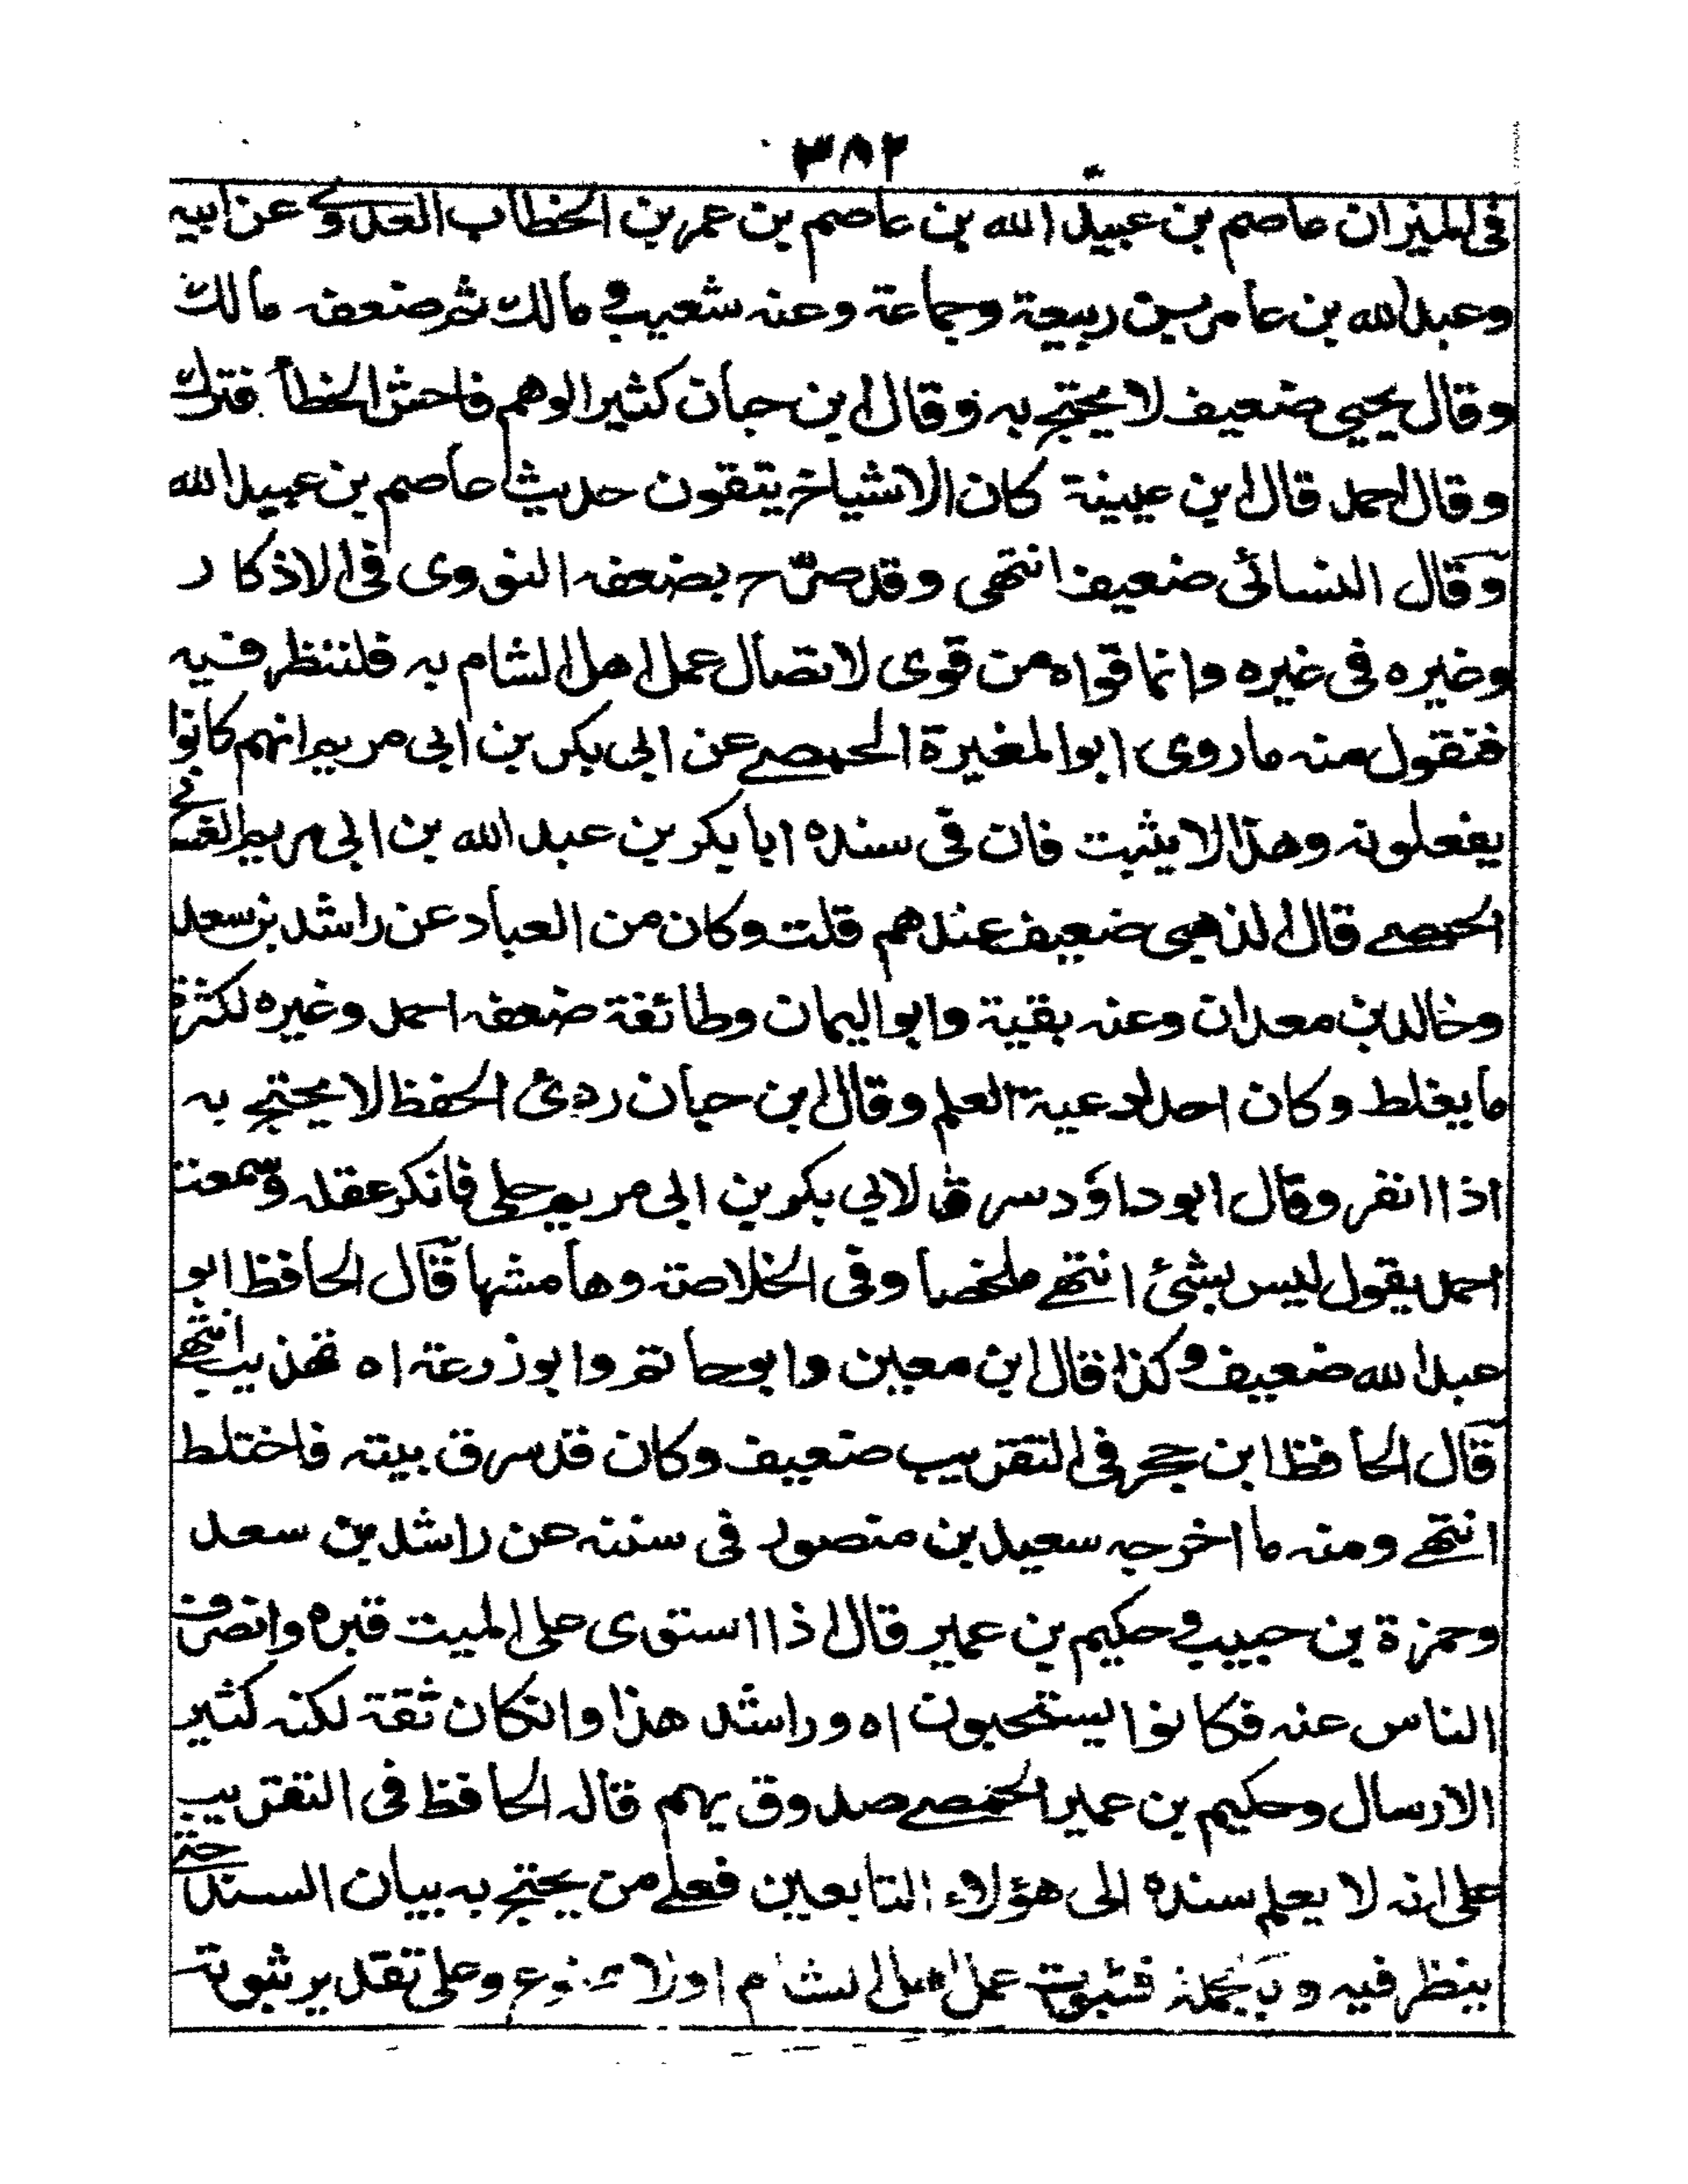 ٣٨٢
فى الميزان عاصم بن عبيد الله بن عاصم بن عمر بن الخطاب العدوى عن ابيه
وعبد الله بن عامر بن ربيعة وجماعة وعنه شعيب و مالك ثم ضعفه مالك
وقال يحيى ضعيف لا يحتج به وقال ابن حبان كثير الوهم فاحش الخطأ فترك
وقال احمد قال ابن عيينة كان الاشياخ يتقون حديث عاصم بن عبيد الله
وقال النسائى ضعيف انتهى وقد صرّح بضعفه النووى فى الاذكار
وغيره فى غيره وانما قواه من قوى لاتصال عمل اهل الشام به فلننظر فيه
فنقول منه ما روى ابو المغيرة الحمصے عن ابى بكر بن ابى مريم انهم كانوا
يفعلونه وهذا لا يثبت فان فى سنده ابا بكر بن عبد الله بن ابى مريم الغسانے
الحمصے قال الذهبى ضعيف عندهم قلت وكان من العباد عن راشد بن سعد
وخالد بن معدان وعنه بقية وابو اليمان وطائفة ضعفه احمد وغيره لكثرة
ما يغلط وكان احد اوعية العلم وقال ابن حبان ردئ الحفظ لا يحتج به
اذا انفر وقال ابو داؤد سرق لابي بكر بن ابى مريم حلى فانكر عقله وسمعت
احمد يقول ليس بشئ انتهے ملخصا وفى الخلاصة وهامشها قال الحافظ ابو
عبد الله ضعيف وكذا قال ابن معين وابو حاتم وابو زرعة اه تهذيب انتهے
قال الحافظ ابن حجر فى التقريب ضعيف وكان قد سرق بيته فاختلط
انتهے ومنه ما اخرجه سعيد بن منصور فى سننه عن راشد بن سعد
وحمزة بن حبيب وحكيم بن عمير قال اذا استوى على الميت قبره وانصرف
الناس عنه فكانوا يستحبون اه وراشد هذا وانكان ثقة لكنه كثير
الارسال وحكيم بن عمير الحمصے صدوق يهم قاله الحافظ فى التقريب
على انه لا يعلم سنده الى هؤلاء التابعين فعلے من يحتج به بيان السند حتے
ينظر فيه وبالجملة فثبوت عمل اهل الشام اولا ممنوع وعلى تقدير ثبوته